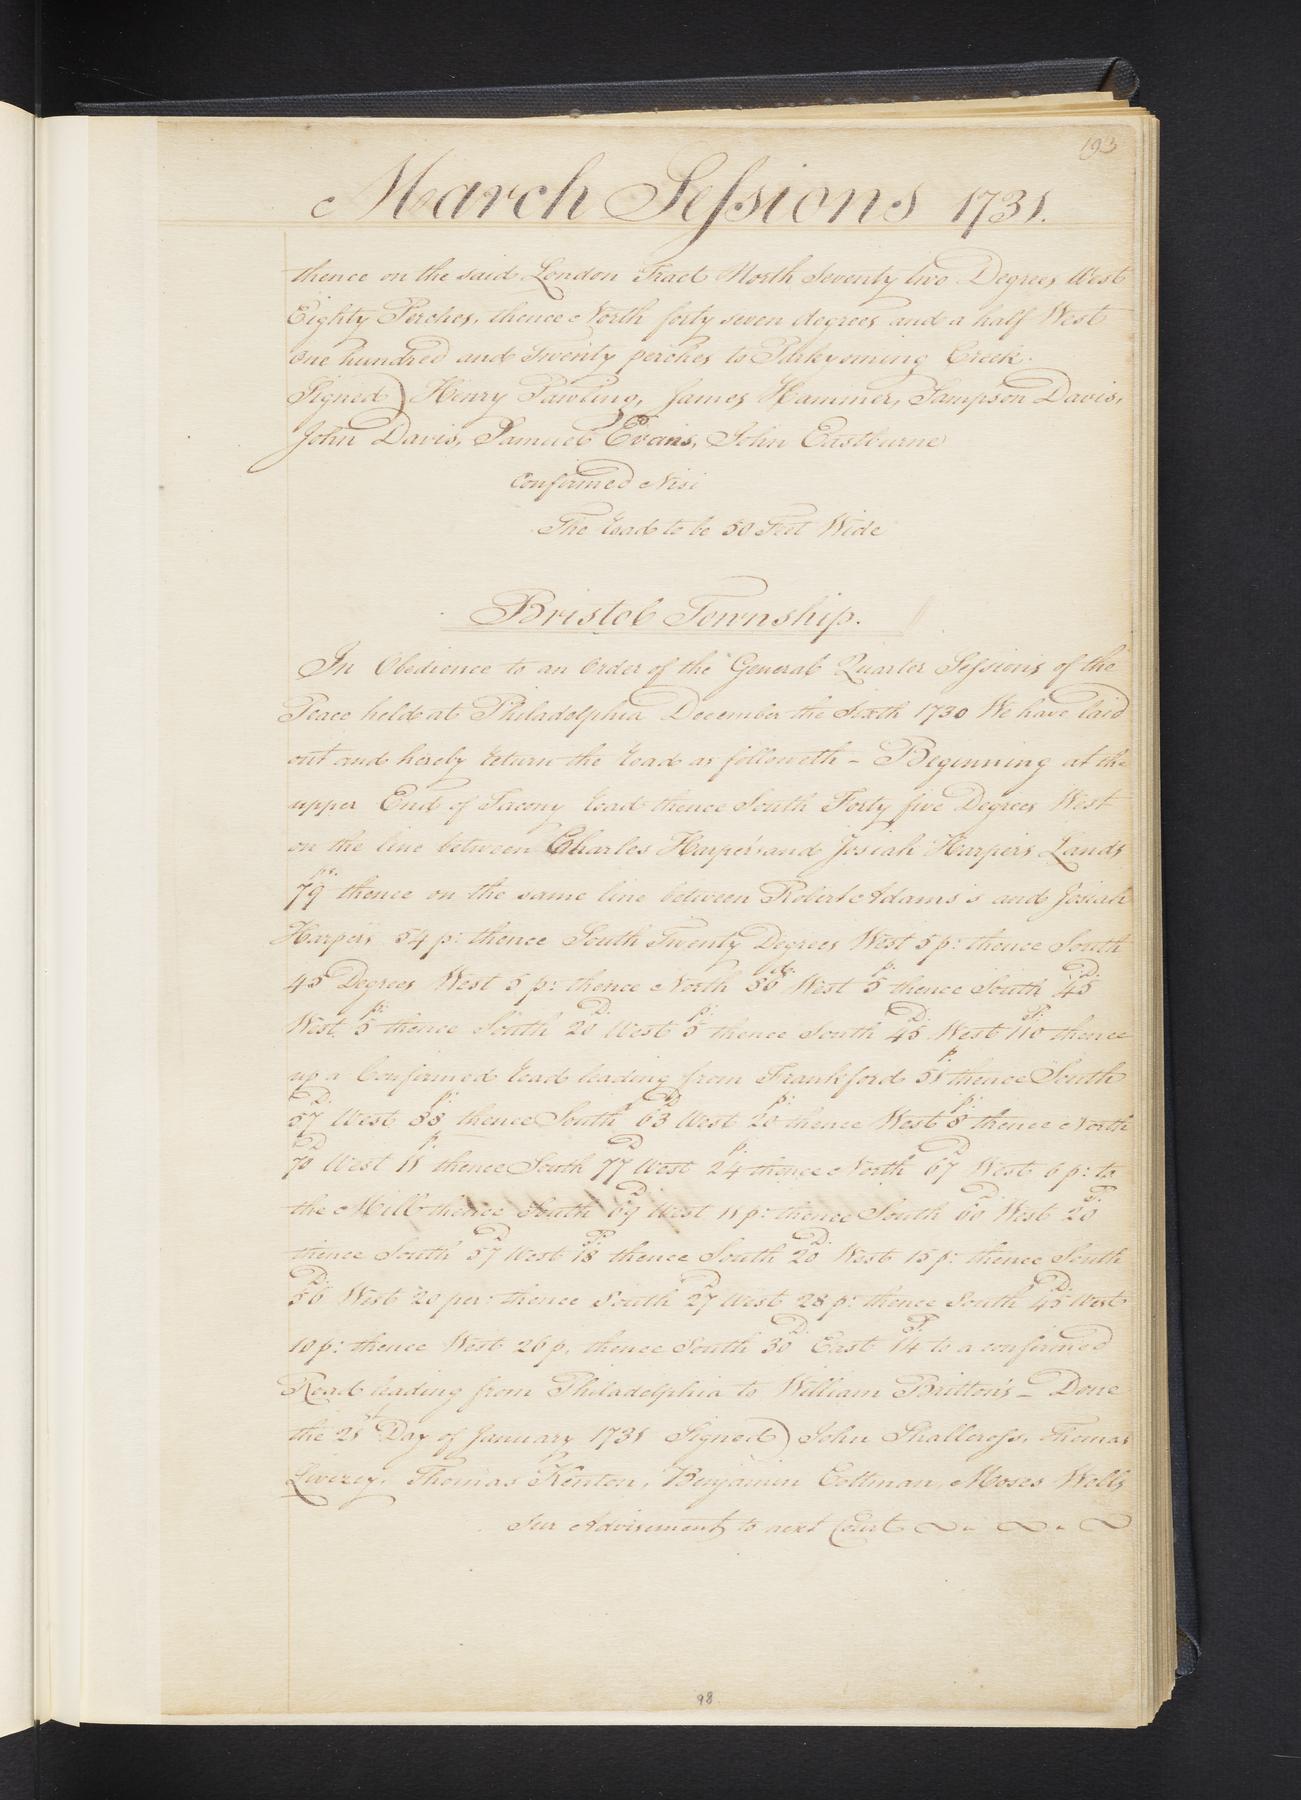 193
March Sessions 1731.
thence on the said London Tract North Seventy two Degrees West
Eighty Perches, thence North forty seven degrees and a half West
One hundred and Twenty perches to Parkyoming Creek.
Signed) Henry Pawling, James Hammer, Sampson Davis,
John Davis, Samuel Evans, John Eastburne
Confirmed Nisi
The road to be 50 Feet Wide
Bristol Township.
In Obedience to an Order of the General Quarter Sessions of the
Peace held at Philadelphia December the Sixth 1730 We have laid
out and hereby return the road as followeth - Beginning at the
upper End of Tacony road thence South Forty five Degrees West
on the line between Charles Harper's and Josiah Harpers Lands
79 prs. thence on the same line between Robert Adams's and Josiah
Harpers 54 p: thence South Twenty Degrees West 5 p: thence South
45 Degrees West 5 p: thence North 56 de: West 5 p: thence South 45 D:
West 5 p: thence South 20 D: West 5 p: thence South 45 D: West 110 P: thence
up a Confirmed road leading from Frankford 51 p. thence South
57 D: West 38 p: thence South 63 D West 20 p: thence West 8 p: thence North
70 D West 11 p: thence South 77 D West 24 p: thence North 67 D West 6 p: to
the Mill thence South 69 D West 11 p: thence South 60 D West 20 P:
thence South 57 D West 18 P: thence South 20 D: West 15 p: thence South
56 D: West 20 per: thence South 27 D West 28 p: thence South 45 D: West
10 p: thence West 26 p. thence South 30 D: East 14 P: to a confirmed
Road leading from Philadelphia to William Britton's - Done
the 21st Day of January 1731 Signed) John Shallcross, Thomas
Livezey, Thomas Kenton, Benjamin Cottman, Moses Wells
Sur Advisement to next Court
98